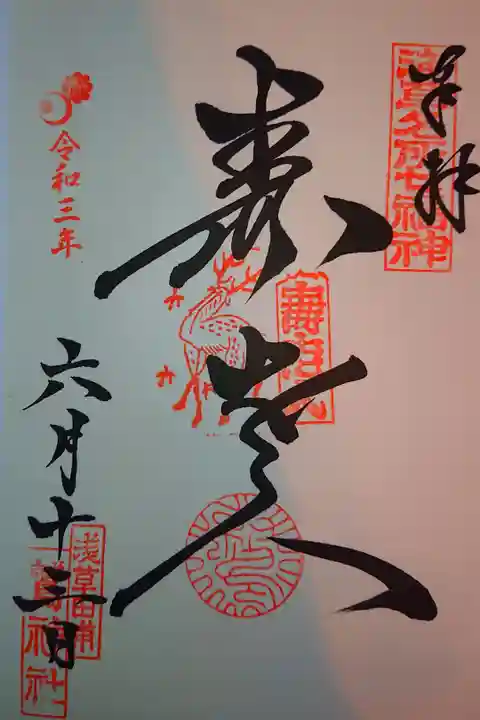 奉拝
浅草名所七福神
寿老人
寿老人
令和三年
六月十三日
浅草田甫
鷲神社